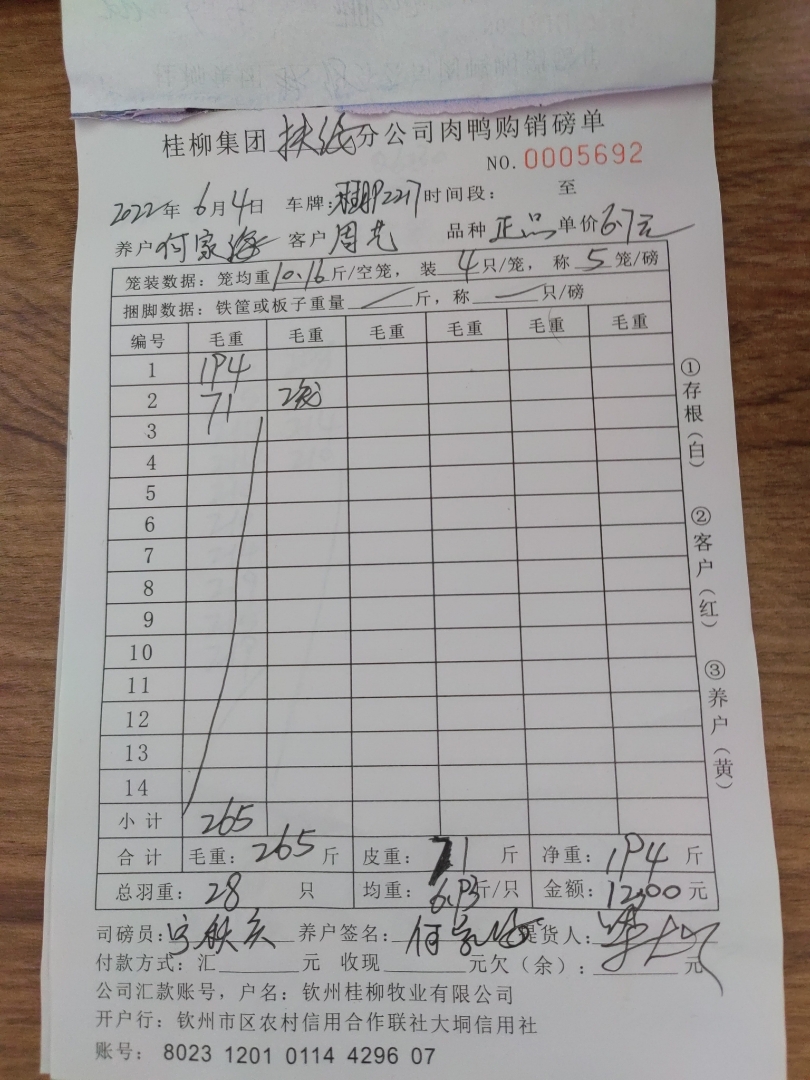 桂柳集团扶绥分公司肉鸭购销磅单
NO. 0005692
2022年 6月4日 车牌: 时间段: 至
养户 何家海 客户 周光 品种 正品 单价 6.7元
笼装数据: 笼均重 10.16 斤/空笼, 装 4 只/笼, 称 5 笼/磅
捆脚数据: 铁筐或板子重量 斤, 称 只/磅
编号 毛重 毛重 毛重 毛重 毛重 毛重
1 194
2 71
3
4
5
6
7
8
9
10
11
12
13
14
小计 265
合计 毛重: 265 斤 皮重: 71 斤 净重: 194 斤
总羽重: 28 只 均重: 6.93 斤/只 金额: 1200 元
司磅员: 养户签名: 何家海 提货人:
付款方式: 汇 元 收现 元欠(余): 元
公司汇款账号, 户名: 钦州桂柳牧业有限公司
开户行: 钦州市区农村信用合作联社大垌信用社
账号: 8023 1201 0114 4296 07
①存根(白)
②客户(红)
③养户(黄)